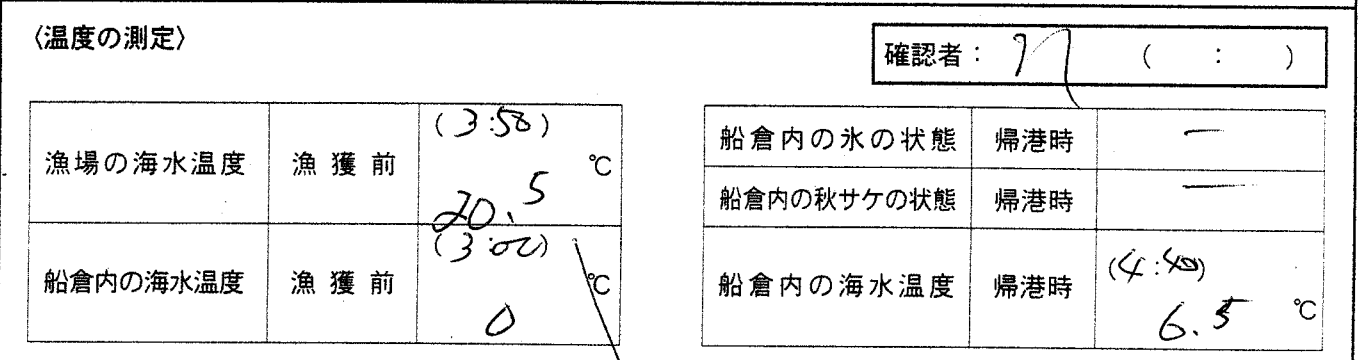 〈温度の測定〉
確認者： （　：　）
漁場の海水温度 漁獲前 (3:50) 20.5 ℃
船倉内の海水温度 漁獲前 (3:00) 0 ℃
船倉内の氷の状態 帰港時 ー
船倉内の秋サケの状態 帰港時 ー
船倉内の海水温度 帰港時 (4:40) 6.5 ℃